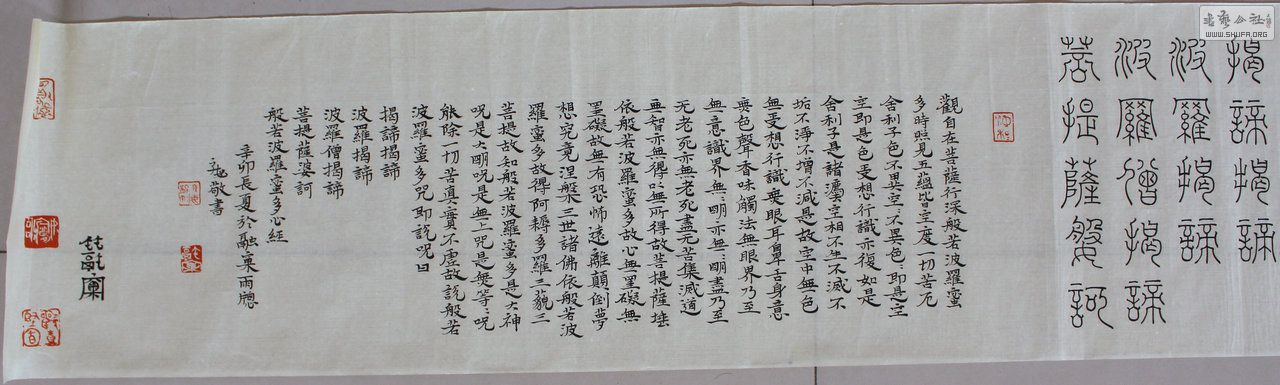 揭諦揭諦
波羅揭諦
波羅僧揭諦
菩提薩婆訶
觀自在菩薩行深般若波羅蜜
多時照見五蘊皆空度一切苦厄
舍利子色不異空空不異色色即是空
空即是色受想行識亦復如是
舍利子是諸法空相不生不滅不
垢不淨不增不減是故空中無色
無受想行識無眼耳鼻舌身意
無色聲香味觸法無眼界乃至
無意識界無無明亦無無明盡乃至
无老死亦無老死盡无苦集滅道
無智亦無得以無所得故菩提薩埵
依般若波羅蜜多故心無罣礙無
罣礙故無有恐怖遠離顛倒夢
想究竟涅槃三世諸佛依般若波
羅蜜多故得阿耨多羅三藐三
菩提故知般若波羅蜜多是大神
咒是大明咒是無上咒是無等等咒
能除一切苦真實不虛故說般若
波羅蜜多咒即說咒曰
揭諦揭諦
波羅揭諦
波羅僧揭諦
菩提薩婆訶
般若波羅蜜多心經
辛卯長夏於融稾雨牕
敬書
WWW.SHUFA.ORG